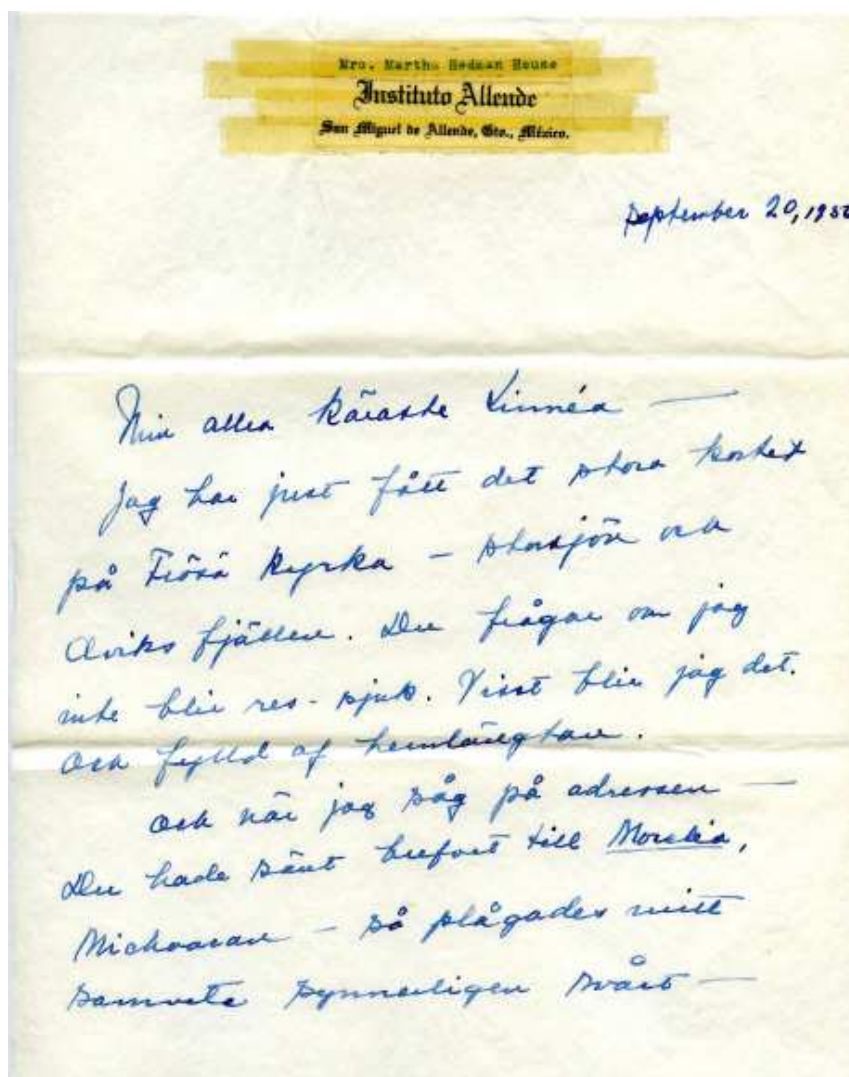 Mrs. Martha Hedman House
Instituto Allende
San Miguel de Allende, Gto., México.
September 20, 195
Min allra käraste Linnéa —
Jag har just fått det stora kortet
på Frösö Kyrka – storsjön och
Oviks fjällen. Du frågar om jag
inte blir res-sjuk. Visst blir jag det.
Och fylld af hemlängtan.
Och när jag såg på adressen —
Du hade sänt brefvet till Morelia,
Michoacan – så plågades mitt
samvete synnerligen svårt —